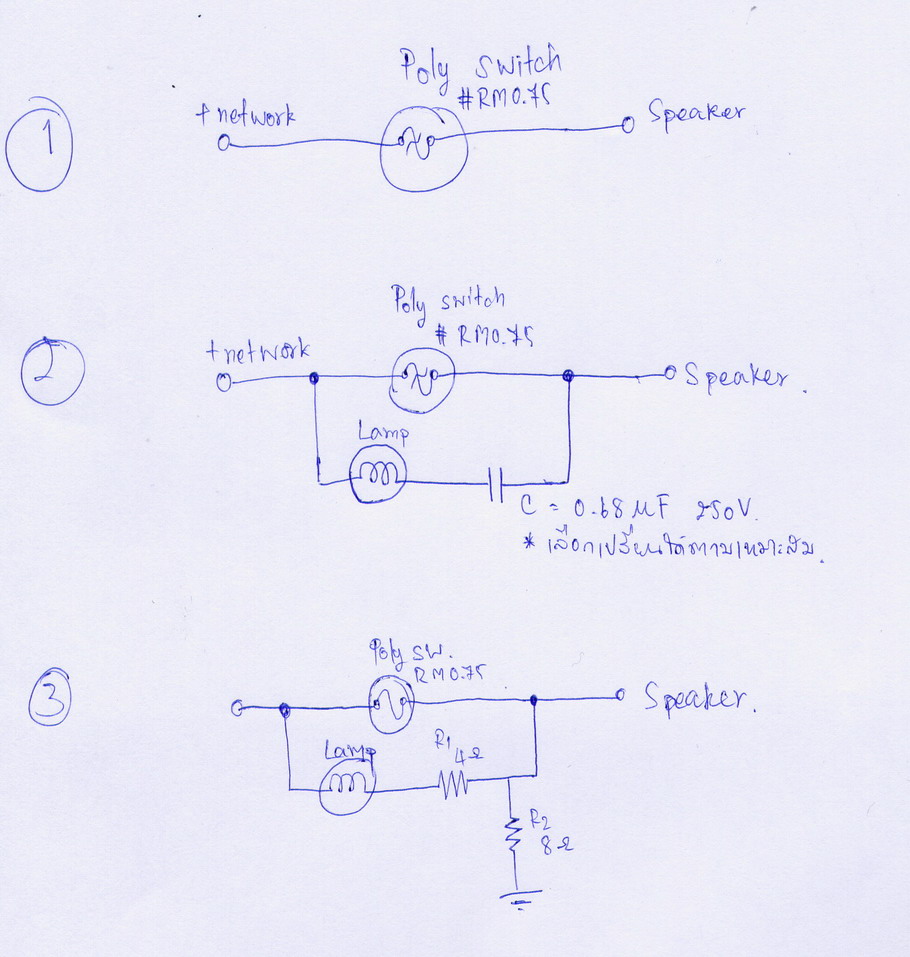 1
Poly switch
#RM0.75
+network
Speaker
2
Poly switch
# RM0.75
+network
Speaker.
Lamp
C = 0.68 µF 250V.
* เลือกเปลี่ยนได้ตามเหมาะสม.
3
Poly sw.
RM0.75
Speaker.
Lamp
R1
4Ω
R2
8Ω